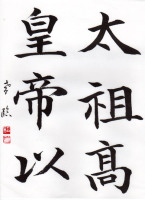 太祖高
皇帝以